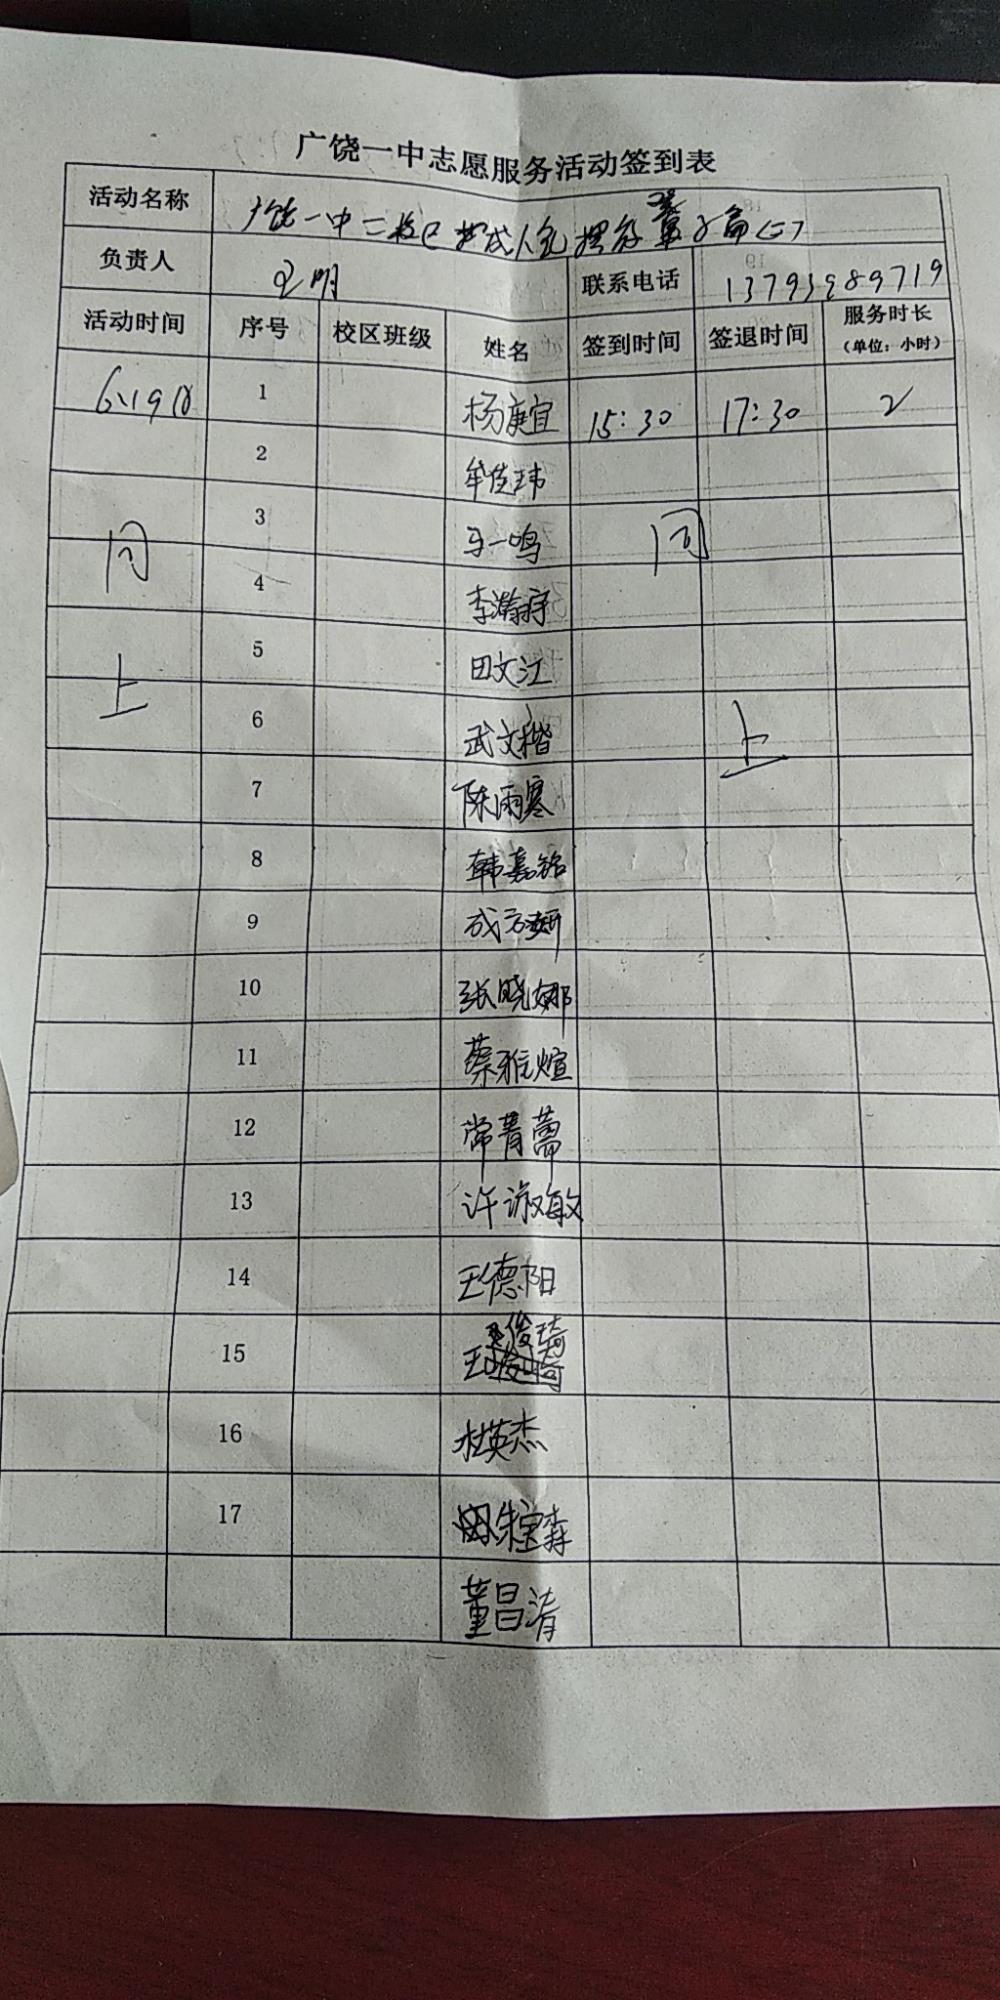 广饶一中志愿服务活动签到表
活动名称 广饶一中二校区 成人礼摆桌凳子篇(二)
负责人 明 联系电话 13793989719
活动时间 序号 校区班级 姓名 签到时间 签退时间 服务时长
(单位：小时)
6.19日 1 杨庚宜 15:30 17:30 2
2 牟佳玮
3 马一鸣
同 同
4 李瀚宇
5 田文江
上 6 武文楷 上
7 陈雨寒
8 韩嘉铭
9 成方妍
10 张晓娜
11 蔡雅煊
12 常菁蕾
13 许淑敏
14 王德阳
15 王俊琦
16 杜英杰
17 朱宝森
董昌清